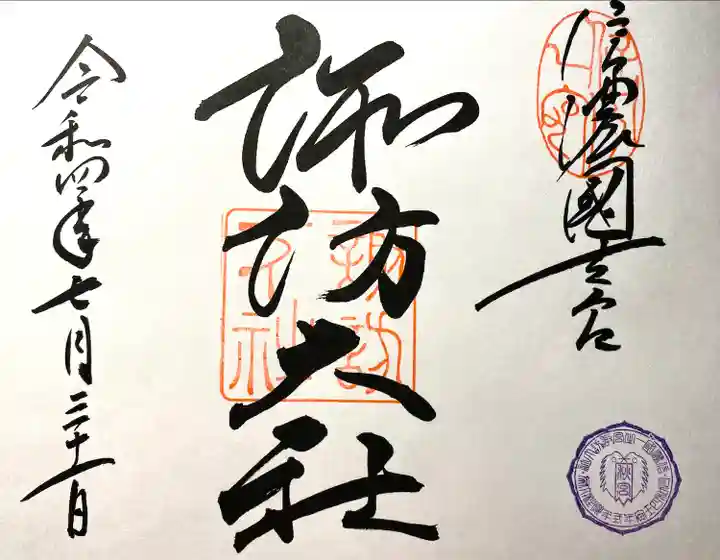 信濃國一之宮
諏訪大社
令和四年七月三十一日
諏訪大社
秋宮